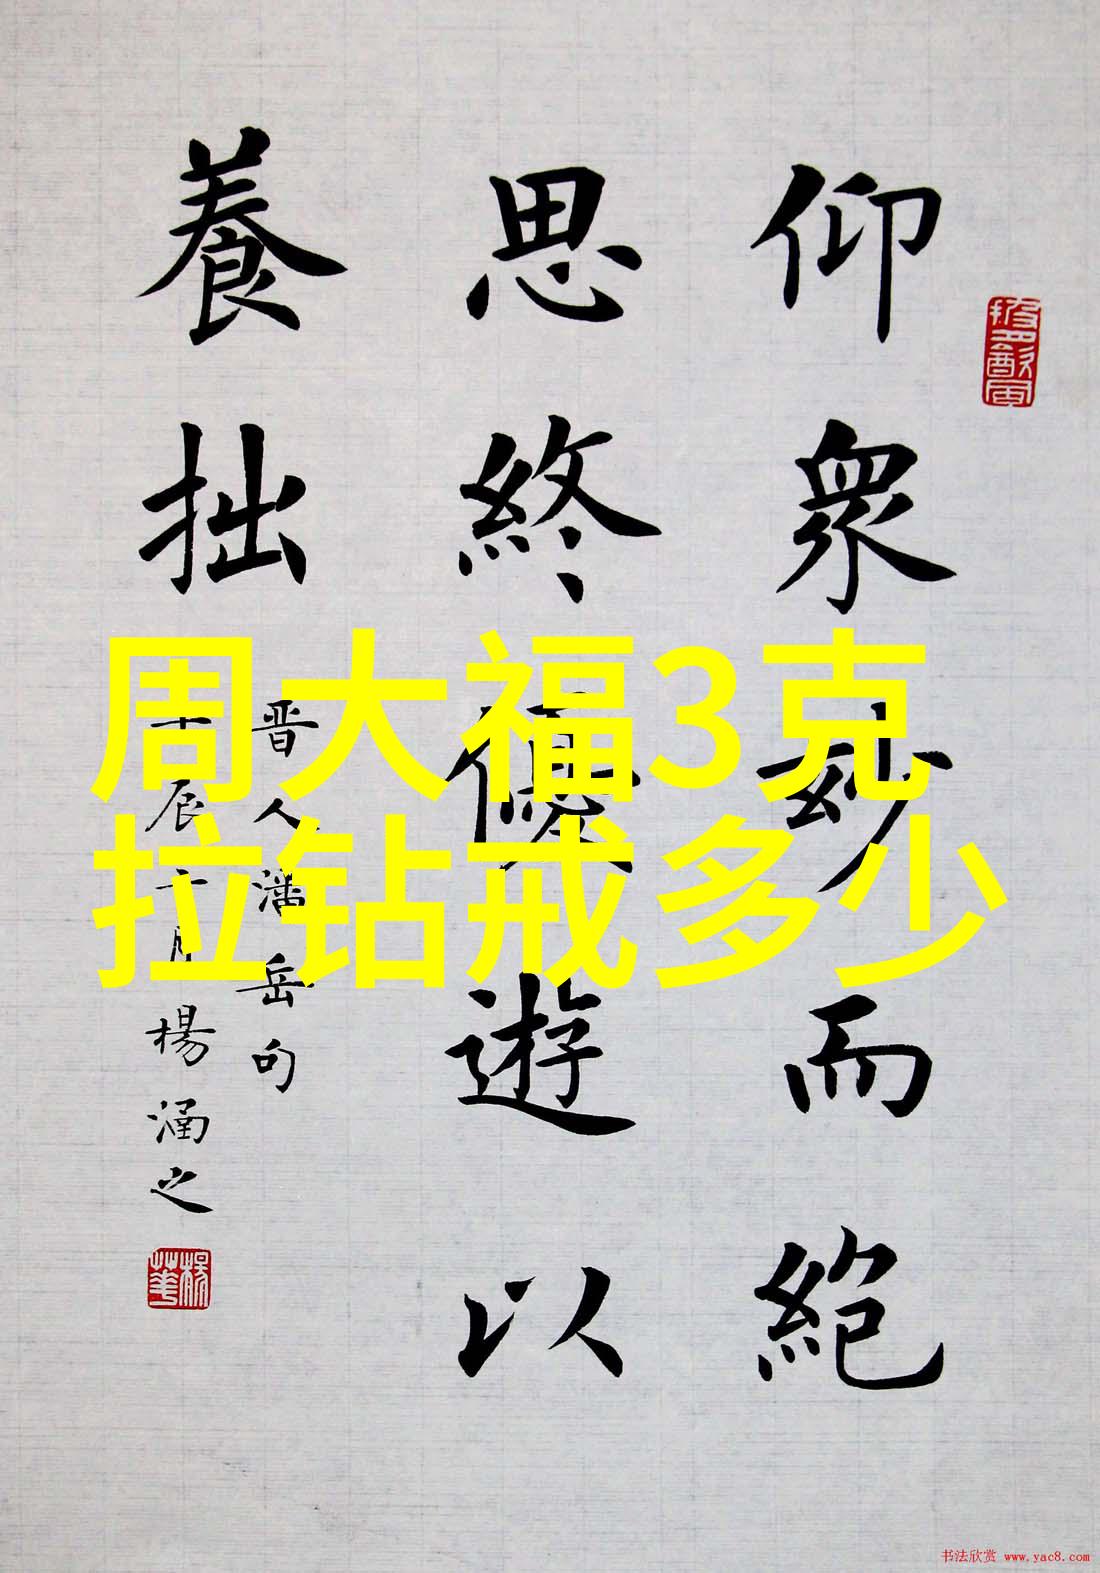 仰眾妙而絕
思終優遊以
養拙
晋人潘岳句
辰十月楊涵之
周大福3克
拉钻戒多少
书法欣赏 www.yac8.com